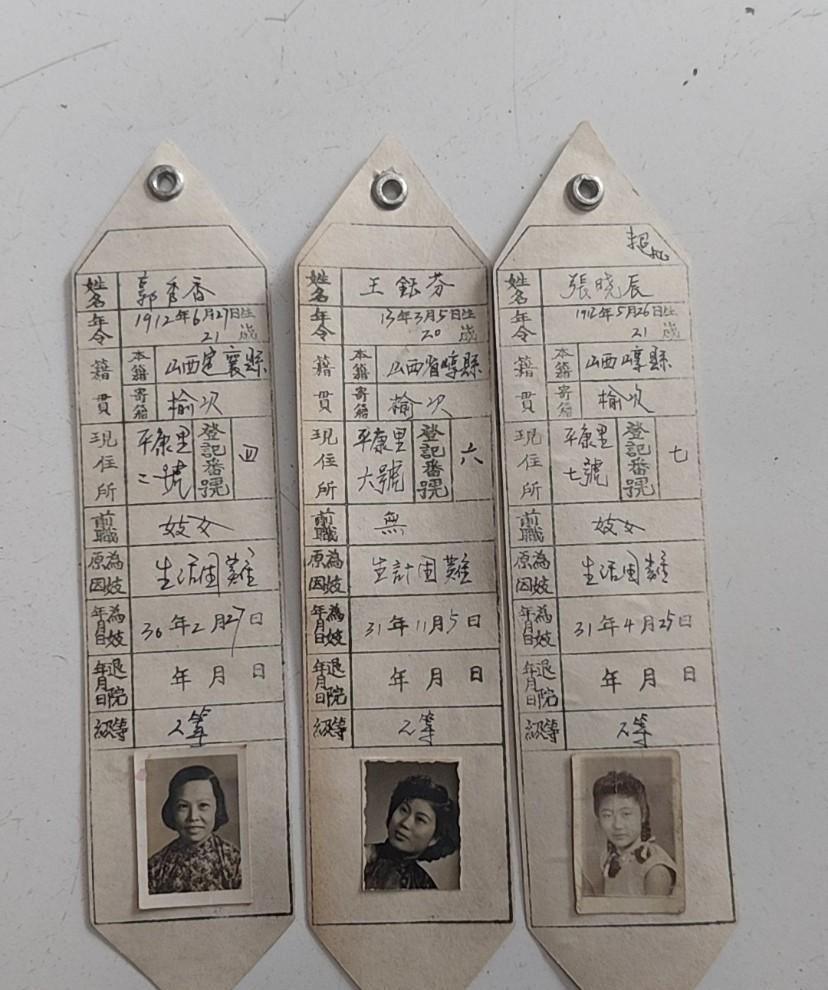 姓名 郭秀香
年令 1912年6月27日生 21歲
籍貫 本籍 山西定襄縣
寄籍 榆次
現住所 平康里二號 登記番號 四
前職 妓女
為妓原因 生活困難
為妓年月日 30年2月27日
退院年月日 年月日
等級 乙等
姓名 王銀芬
年令 13年3月5日生 20歲
籍貫 本籍 山西省崞縣
寄籍 榆次
現住所 平康里六號 登記番號 六
前職 無
為妓原因 生計困難
為妓年月日 31年11月5日
退院年月日 年月日
等級 乙等
姓名 張曉辰
年令 1912年5月26日生 21歲
籍貫 本籍 山西崞縣
寄籍 榆次
現住所 平康里七號 登記番號 七
前職 妓女
為妓原因 生活困難
為妓年月日 31年4月25日
退院年月日 年月日
等級 乙等